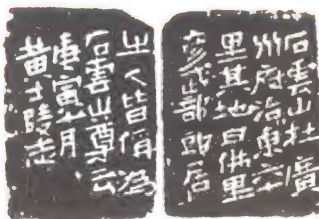 石雲山在廣
州府治東六十
里其地曰佛里
彦武部郎居
之人皆偁為
石雲山尊云
庚寅十月
黄士陵志